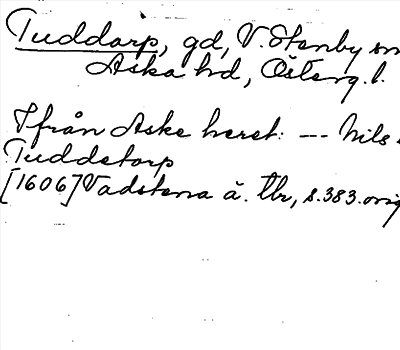 Tuddarp, gd, V. Stenby sn
Aska hd, Österg. l.
Ifrån Aske heret: --- Nils
Tuddetorp
[1606] Vadstena ä. tbr, s. 383. orig